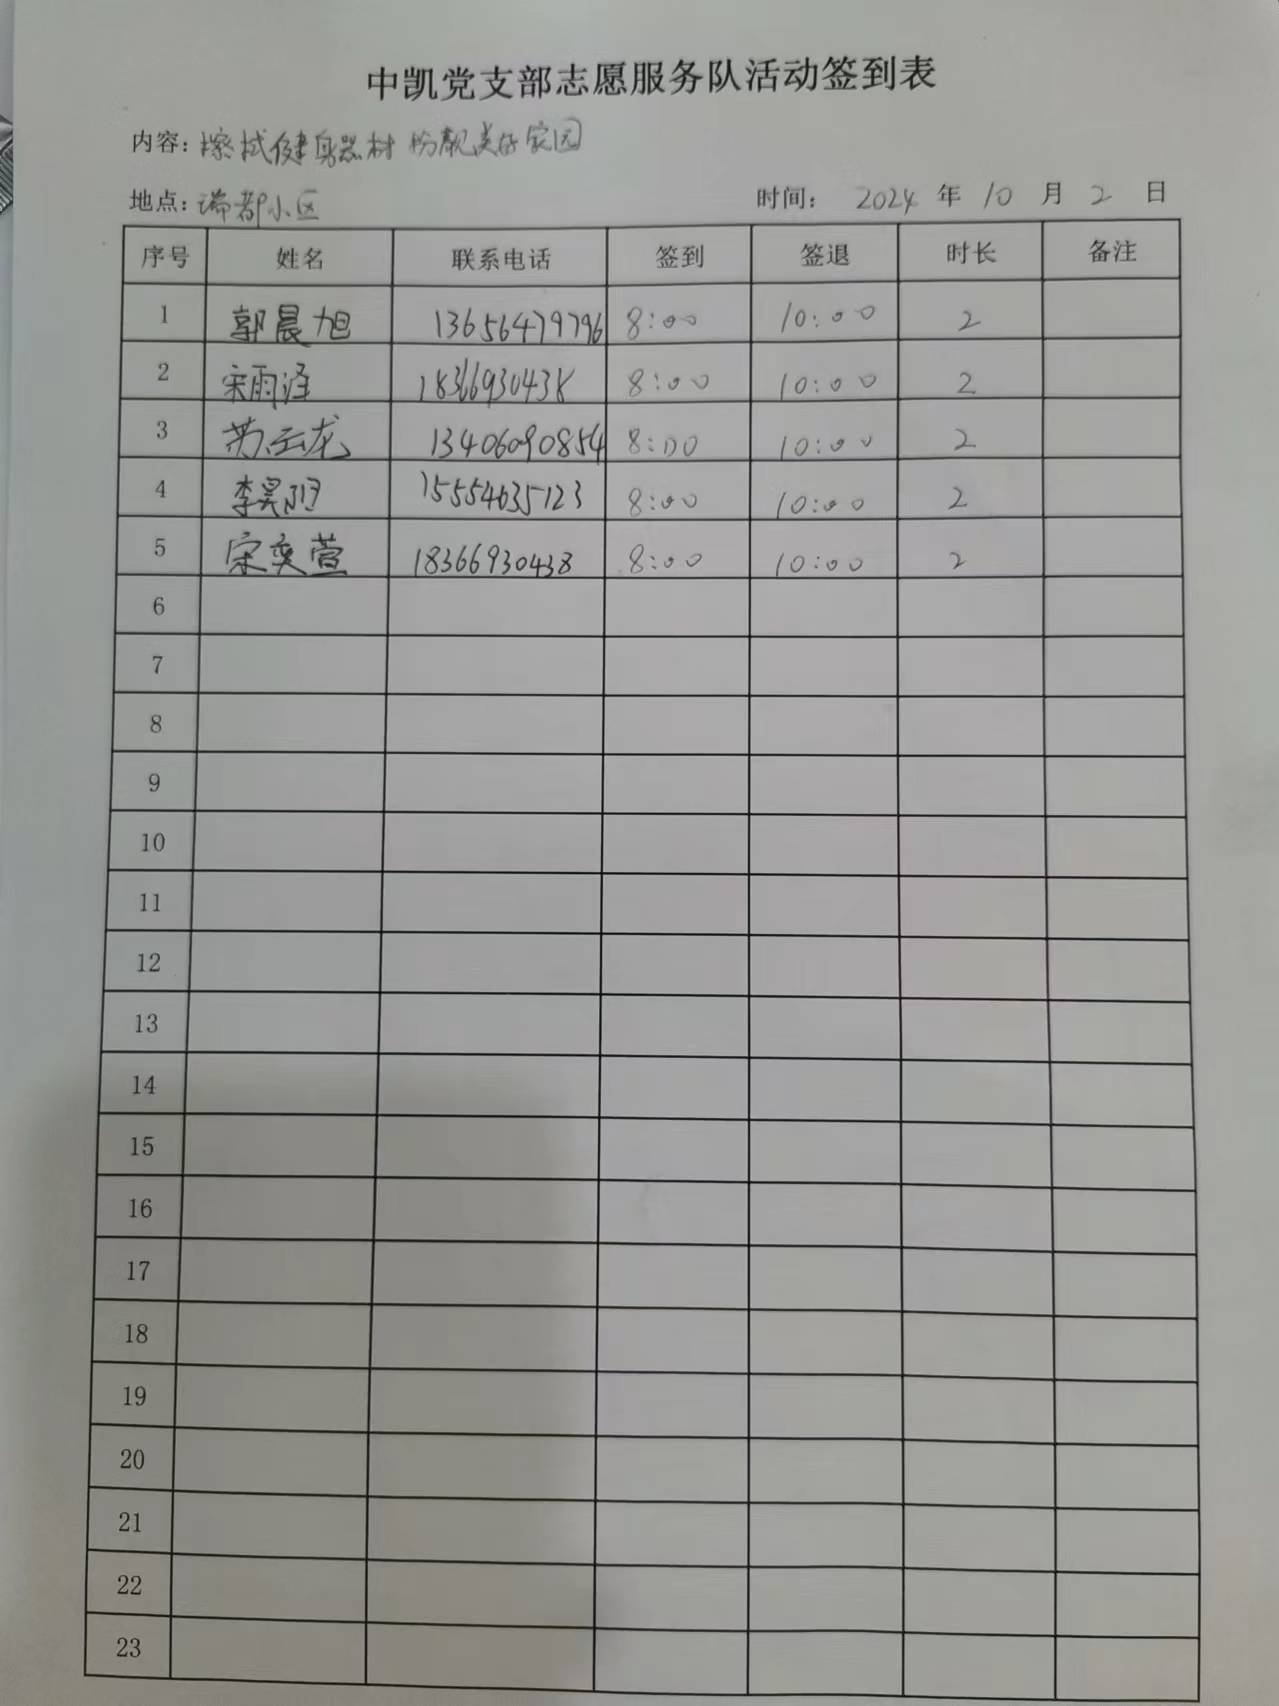 中凯党支部志愿服务队活动签到表
内容：擦拭健身器材 扮靓美好家园
地点：瑞都小区 时间： 2024 年 10 月 2 日
序号 姓名 联系电话 签到 签退 时长 备注
1 郭晨旭 13656479796 8:00 10:00 2
2 宋雨泽 18366930438 8:00 10:00 2
3 苏云龙 13406090854 8:00 10:00 2
4 李昊 15554635123 8:00 10:00 2
5 宋奕萱 18366930438 8:00 10:00 2
6
7
8
9
10
11
12
13
14
15
16
17
18
19
20
21
22
23